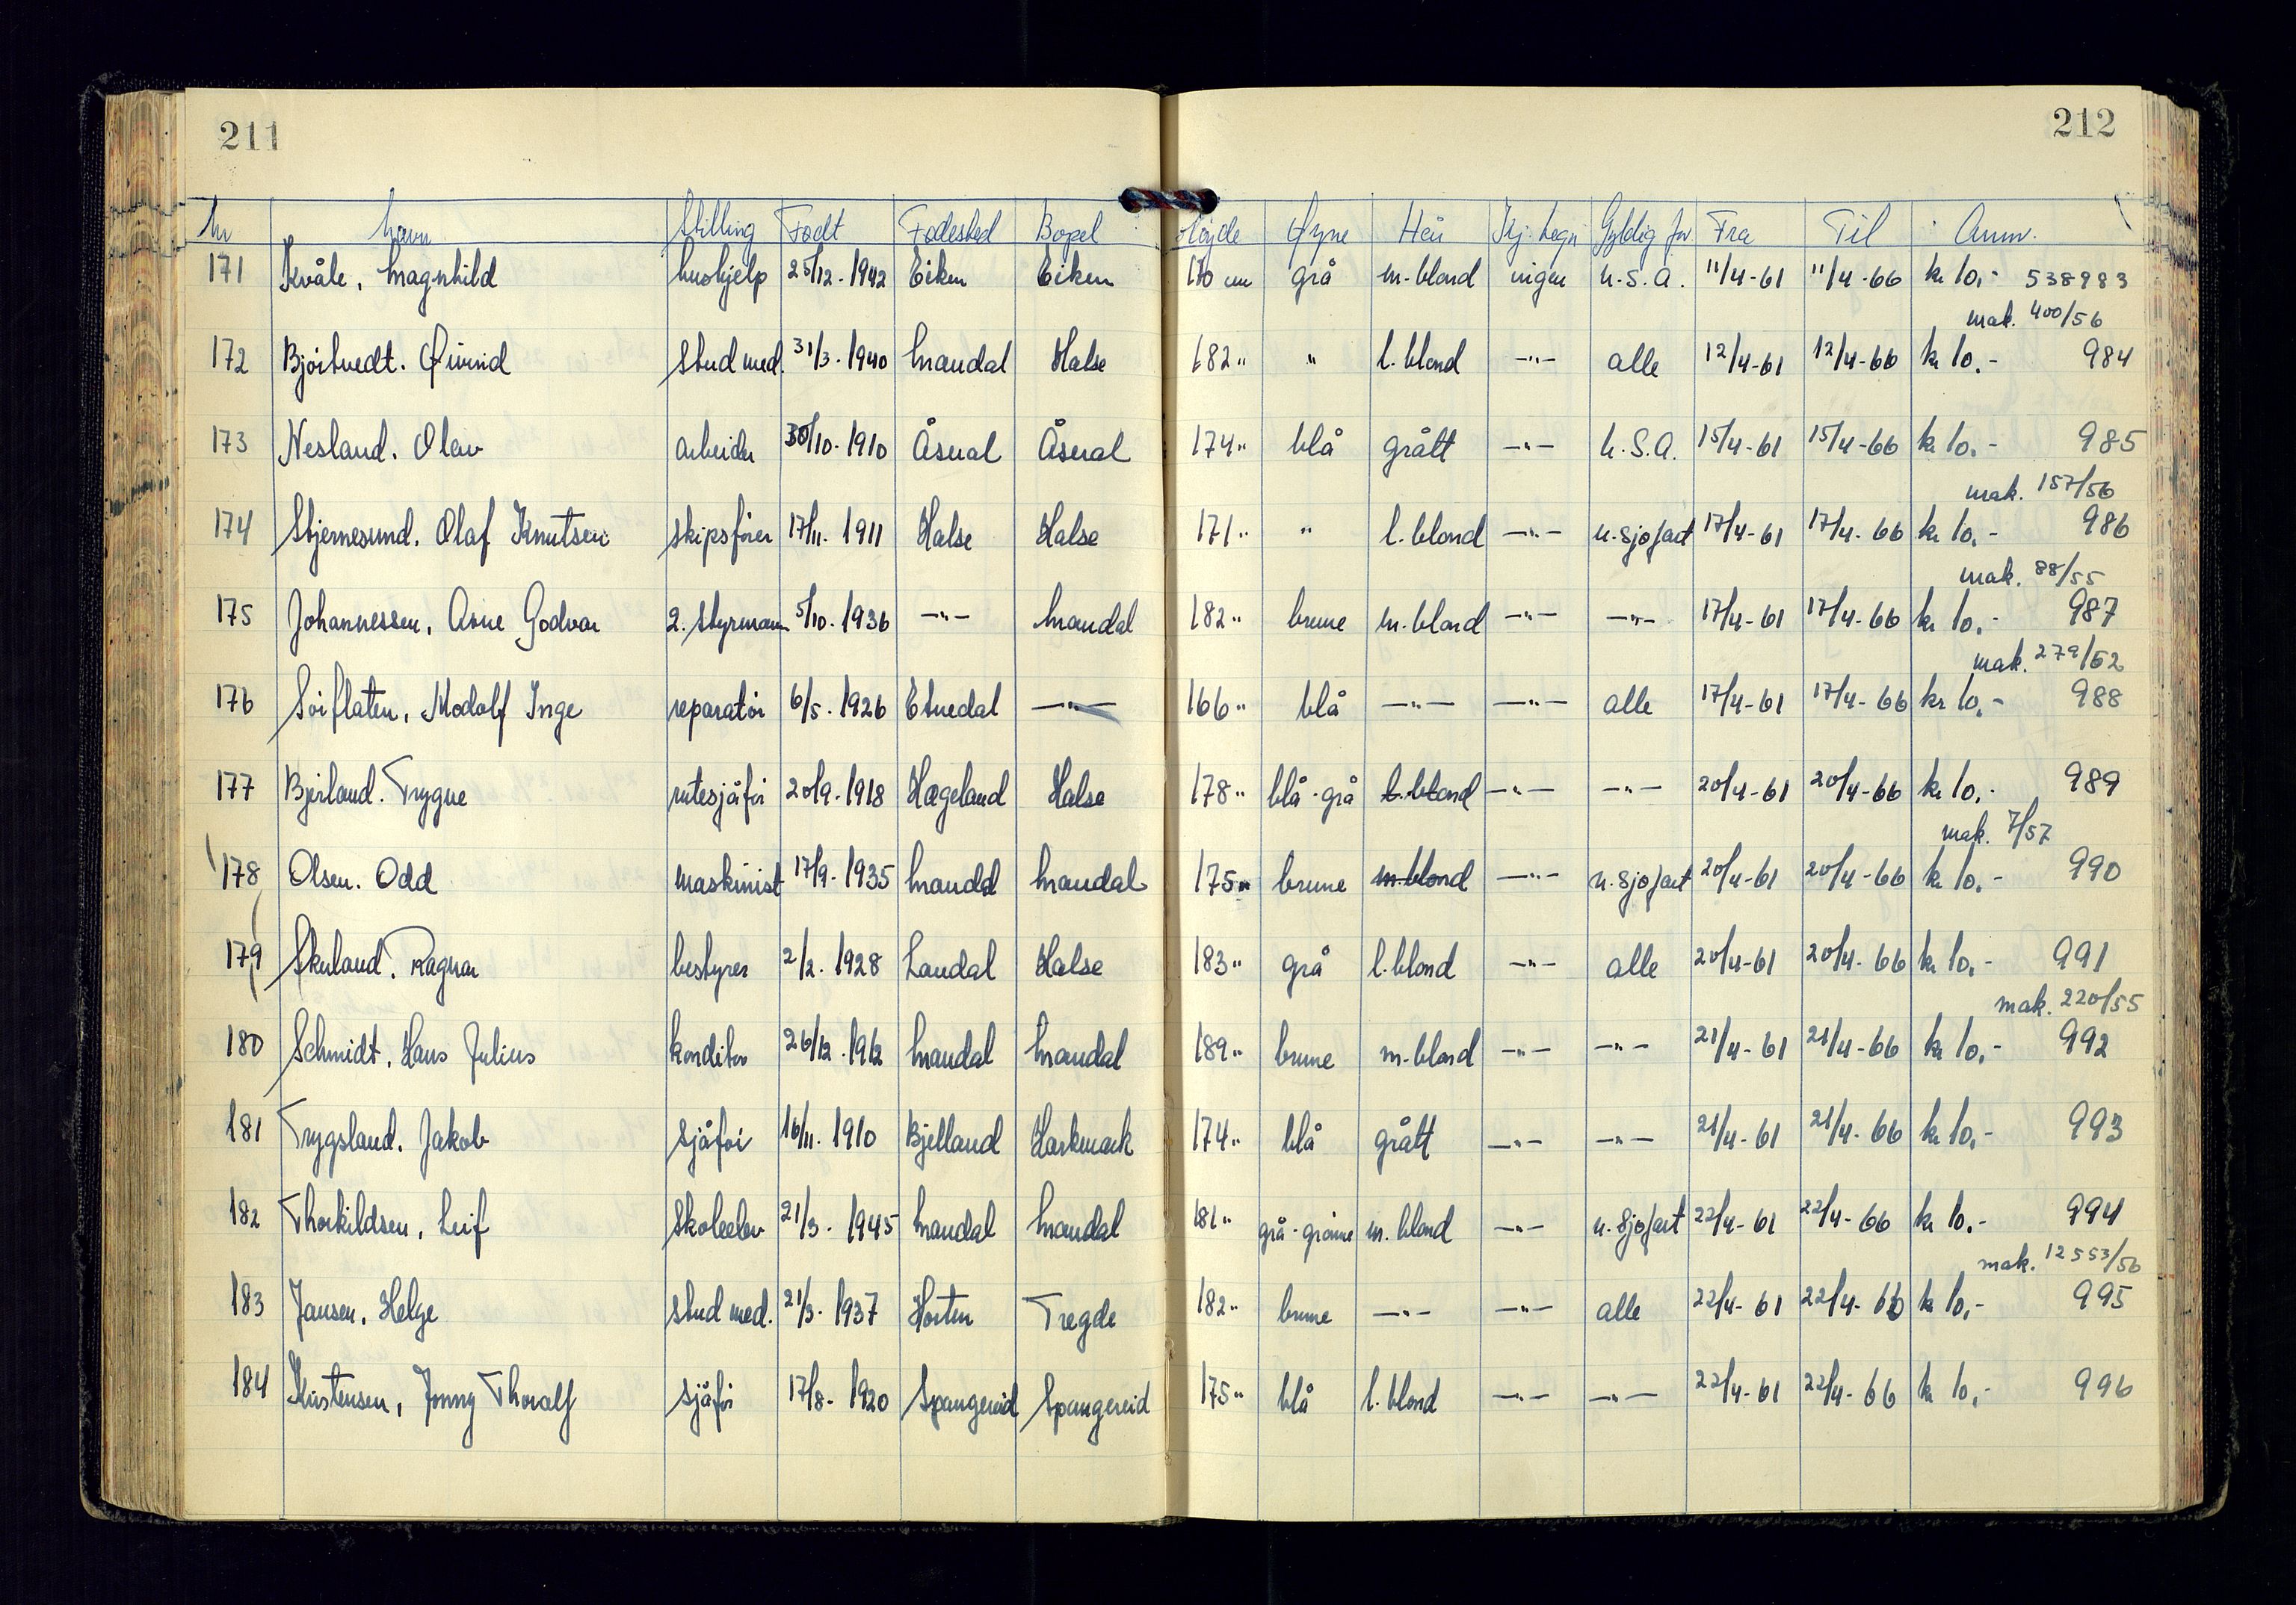 211
212
Nr Navn Stilling Født Fødested Bopel Høyde Øyne Hår Kj. tegn Gyldig for Fra Til Anm.
171 Kvåle, Magnhild hushjelp 25/12-1942 Eiken Eiken 170 cm grå m-blond ingen U.S.A. 11/4-61 11/4-66 kr 10,- 538983
mak. 400/56
172 Bjørtvedt. Øivind stud med. 31/3-1940 Mandal Halse 182 " " l. blond -"- alle 12/4-61 12/4-66 kr 10.- 984
173 Nesland. Olav arbeider 30/10-1910 Åseral Åseral 174 " blå grått -"- U.S.A. 15/4-61 15/4-66 kr 10.- 985
mak. 157/56
174 Stjernesund. Olaf Knutsen skipsfører 17/11-1911 Halse Halse 171 " " l. blond -"- u. sjøfart 17/4-61 17/4-66 kr 10.- 986
mak. 88/55
175 Johannessen, Arne Godvar 2. styrmann 5/10-1936 -"- Mandal 182 " brune m. blond -"- -"- 17/4-61 17/4-66 kr 10.- 987
mak. 279/52
176 Sørflaten, Modolf Inge reparatør 6/5-1926 Etnedal -"- 166 " blå -"- -"- alle 17/4-61 17/4-66 kr 10.- 988
177 Bjerland. Trygve rutesjåfør 20/9-1918 Hægeland Halse 178 " blå-grå l. blond -"- -"- 20/4-61 20/4-66 kr 10.- 989
mak. 7/57
178 Olsen. Odd maskinist 17/9-1935 Mandal Mandal 175 " brune m-blond -"- u. sjøfart 20/4-61 20/4-66 kr 10.- 990
179 Skuland. Ragnar bestyrer 2/2-1928 Laudal Halse 183 " grå l. blond -"- alle 20/4-61 20/4-66 kr 10.- 991
mak. 220/55
180 Schmidt, Hans Julius konditor 26/12-1912 Mandal Mandal 189 " brune m-blond -"- -"- 21/4-61 21/4-66 kr 10.- 992
181 Trygsland. Jakob sjåfør 16/11-1910 Bjelland Harkmark 174 " blå grått -"- -"- 21/4-61 21/4-66 kr 10.- 993
182 Thorkildsen, Leif skoleelev 21/3-1945 Mandal Mandal 181 " grå-grønne m. blond -"- u. sjøfart 22/4-61 22/4-66 kr 10.- 994
mak. 12553/56
183 Jansen, Helge stud med. 21/3-1937 Horten Tregde 182 " brune -"- -"- alle 22/4-61 22/4-66 kr 10.- 995
184 Kristensen, Jonny Thoralf sjåfør 17/8-1920 Spangereid Spangereid 175 " blå l. blond -"- -"- 22/4-61 22/4-66 kr 10.- 996